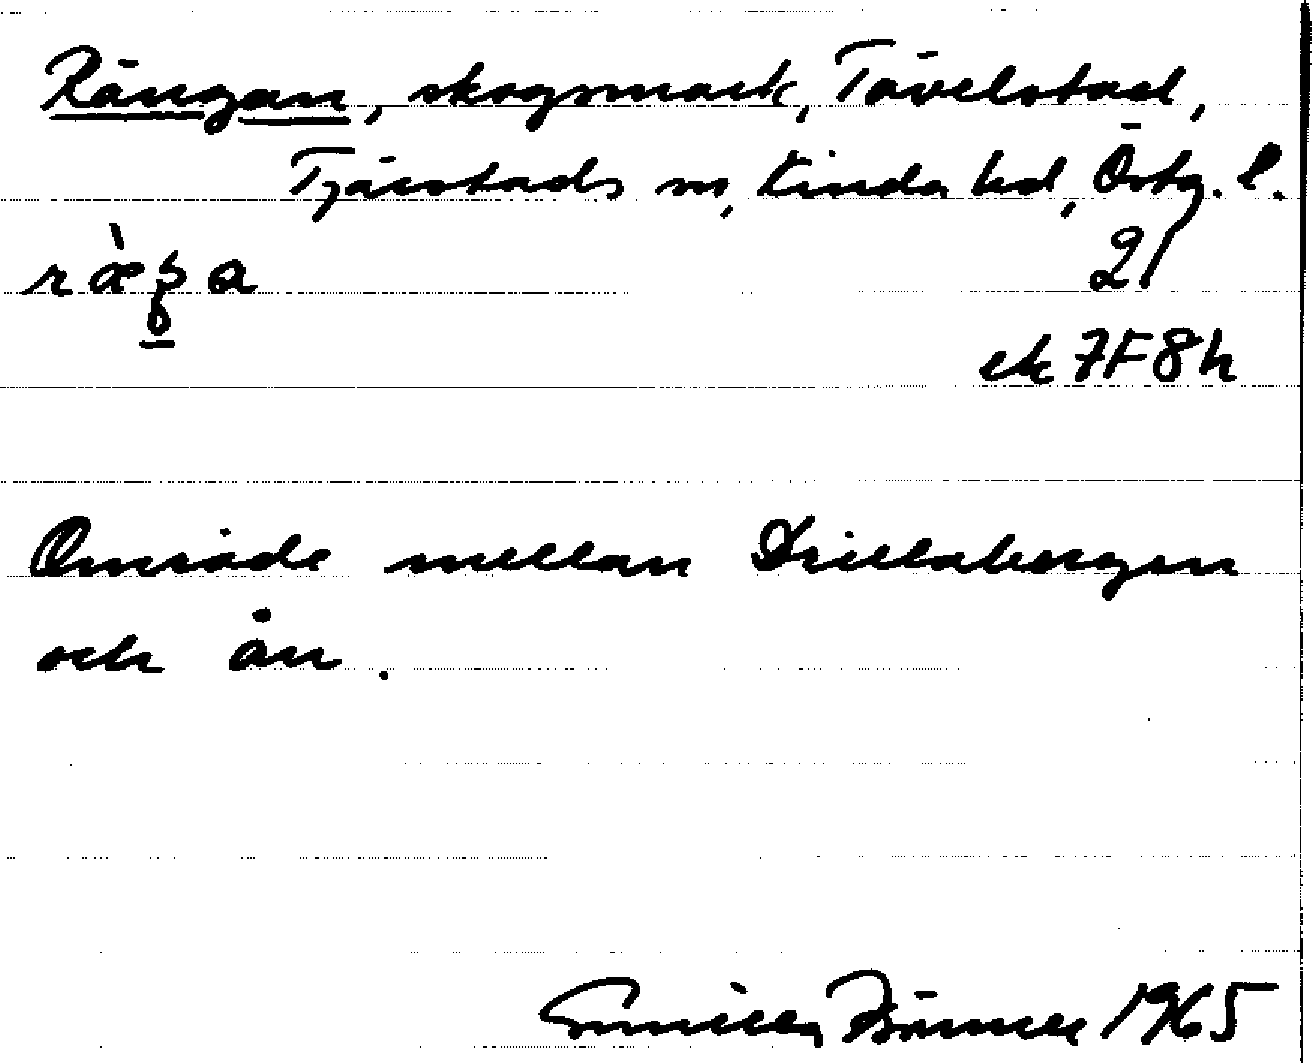 Rängan, skogsmark, Tävelstad,
Tjärstads sn, Kinda hd, Östg. l.
21
ek 7F8h
Område mellan Drillabergen
och ån.
Gunilla 1965